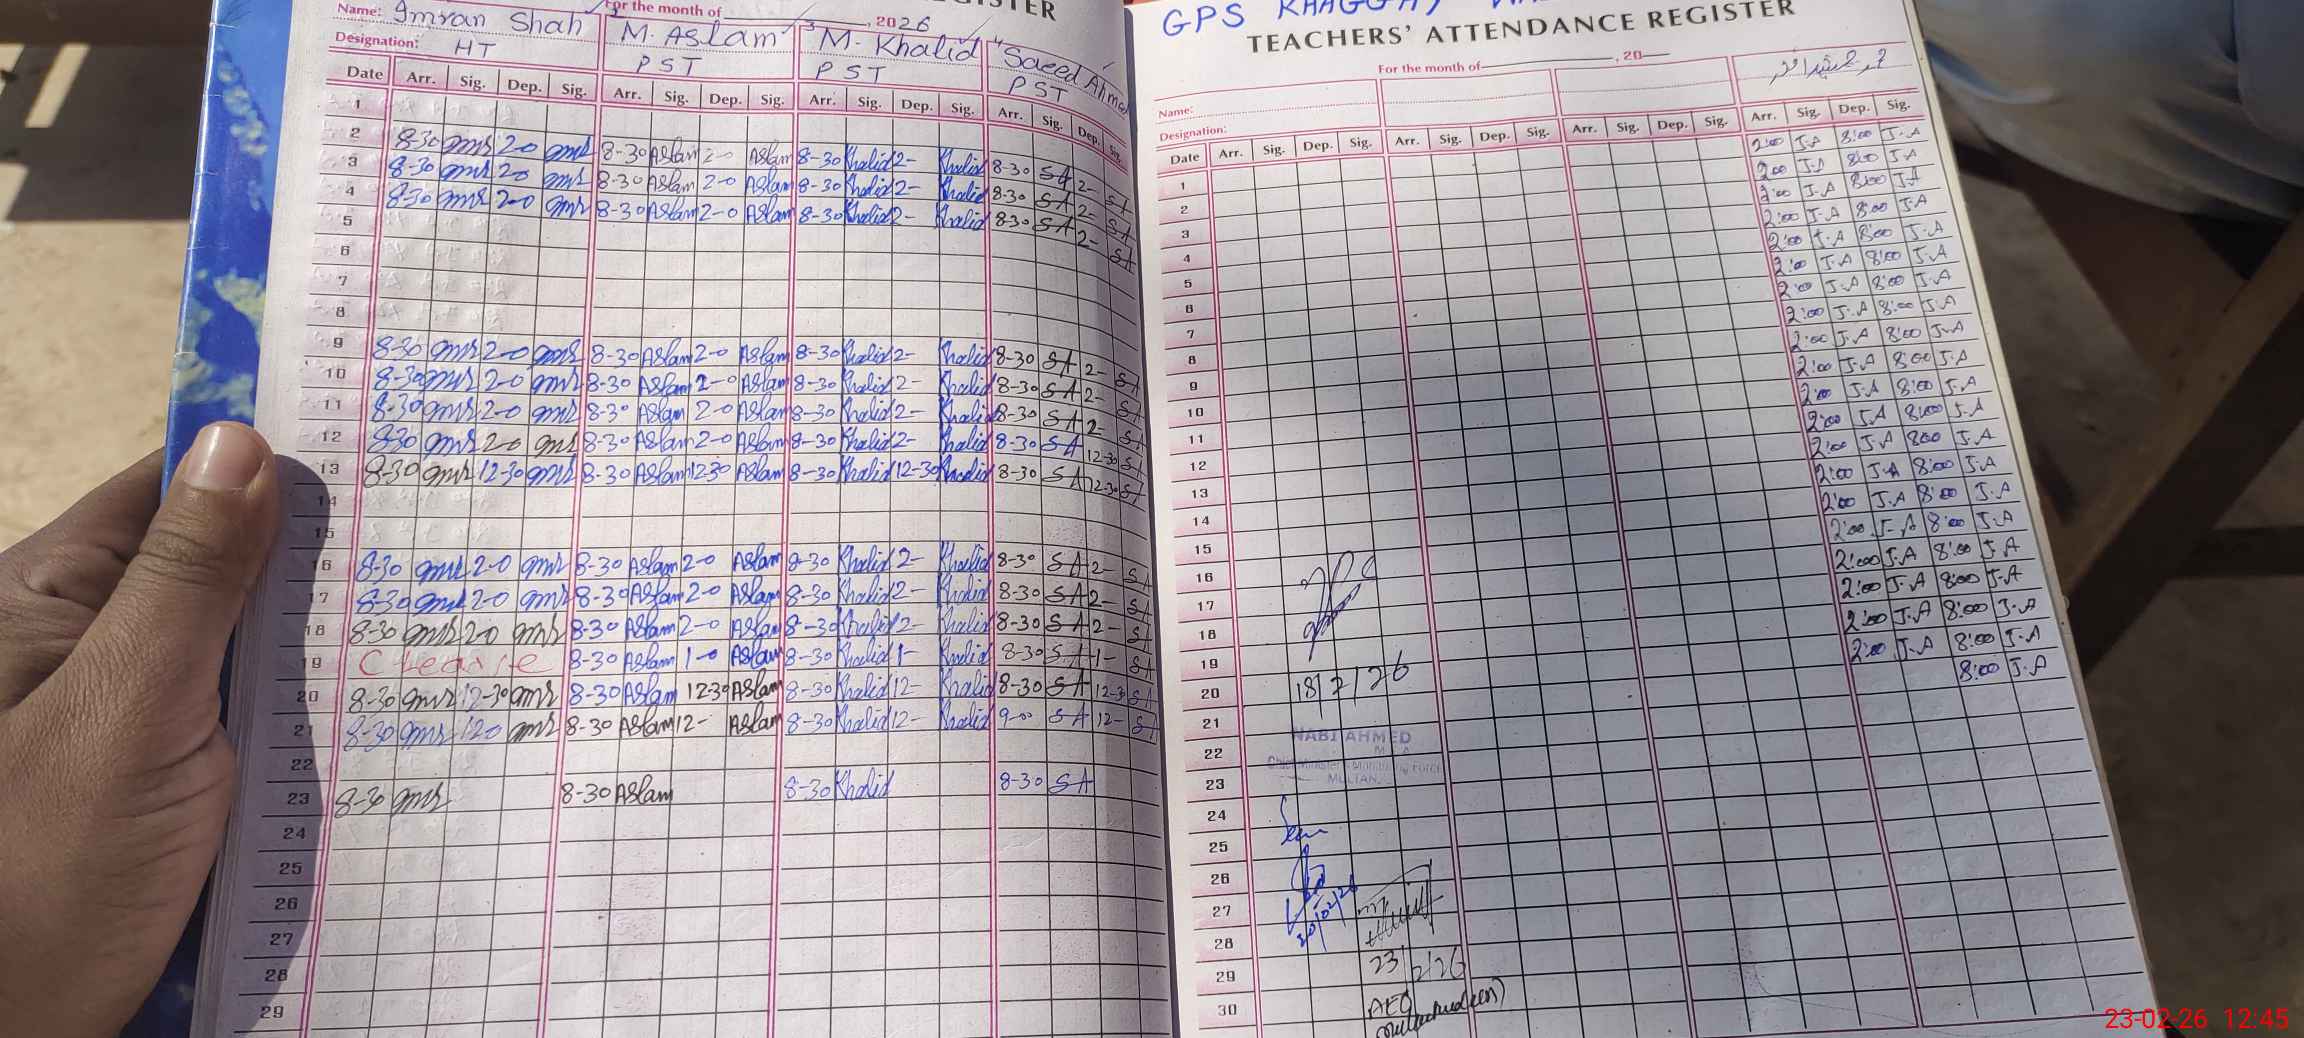 Name: Imran Shah For the month of , 2026
Designation: HT
M. Aslam
PST
M. Khalid
PST
Saeed Ahmad
PST
Date Arr. Sig. Dep. Sig. Arr. Sig. Dep. Sig. Arr. Sig. Dep. Sig. Arr. Sig. Dep. Sig.
1
2 8-30 2-0 8-30 Aslam 2-0 Aslam 8-30 Khalid 2- Khalid 8-30 SA 2- SA
3 8-30 2-0 8-30 Aslam 2-0 Aslam 8-30 Khalid 2- Khalid 8-30 SA 2- SA
4 8-30 2-0 8-30 Aslam 2-0 Aslam 8-30 Khalid 2- Khalid 8-30 SA 2- SA
5
6
7
8
9 8-30 2-0 8-30 Aslam 2-0 Aslam 8-30 Khalid 2- Khalid 8-30 SA 2- SA
10 8-30 2-0 8-30 Aslam 2-0 Aslam 8-30 Khalid 2- Khalid 8-30 SA 2- SA
11 8-30 2-0 8-30 Aslam 2-0 Aslam 8-30 Khalid 2- Khalid 8-30 SA 2- SA
12 8-30 2-0 8-30 Aslam 2-0 Aslam 8-30 Khalid 2- Khalid 8-30 SA 12-30 SA
13 8-30 12-30 8-30 Aslam 12-30 Aslam 8-30 Khalid 12-30 Khalid 8-30 SA 12-30 SA
14
15
16 8-30 2-0 8-30 Aslam 2-0 Aslam 8-30 Khalid 2- Khalid 8-30 SA 2- SA
17 8-30 2-0 8-30 Aslam 2-0 Aslam 8-30 Khalid 2- Khalid 8-30 SA 2- SA
18 8-30 2-0 8-30 Aslam 2-0 Aslam 8-30 Khalid 2- Khalid 8-30 SA 2- SA
19 8-30 Aslam 1-0 Aslam 8-30 Khalid 1- Khalid 8-30 SA 1- SA
20 8-30 12-30 8-30 Aslam 12-30 Aslam 8-30 Khalid 12- Khalid 8-30 SA 12-30 SA
21 8-30 12-0 8-30 Aslam 12- Aslam 8-30 Khalid 12- Khalid 9-00 SA 12- SA
22
23 8-30 8-30 Aslam 8-30 Khalid 8-30 SA
24
25
26
27
28
29
GPS KHAGGAY
TEACHERS' ATTENDANCE REGISTER
For the month of , 20
Name:
Designation:
Date Arr. Sig. Dep. Sig. Arr. Sig. Dep. Sig. Arr. Sig. Dep. Sig. Arr. Sig. Dep. Sig.
2:00 J.A 8:00 J.A
2:00 J.A 8:00 J.A
2:00 J.A 8:00 J.A
2:00 J.A 8:00 J.A
2:00 J.A 8:00 J.A
2:00 J.A 8:00 J.A
2:00 J.A 8:00 J.A
2:00 J.A 8:00 J.A
2:00 J.A 8:00 J.A
2:00 J.A 8:00 J.A
2:00 J.A 8:00 J.A
2:00 J.A 8:00 J.A
2:00 J.A 800 J.A
2:00 J.A 8:00 J.A
2:00 J.A 8:00 J.A
2:00 J.A 8:00 J.A
2:00 J.A 8:00 J.A
2:00 J.A 8:00 J.A
2:00 J.A 8:00 J.A
2:00 J.A 8:00 J.A
8:00 J.A
1
2
3
4
5
6
7
8
9
10
11
12
13
14
15
16
17
18
19
20
21
22
23
24
25
26
27
28
29
30
18/2/26
NABI AHMED
M.E.A
Chief Minister's Monitoring Force
MULTAN.
20/02/26
23/2/26
AEO
23-02-26 12:45